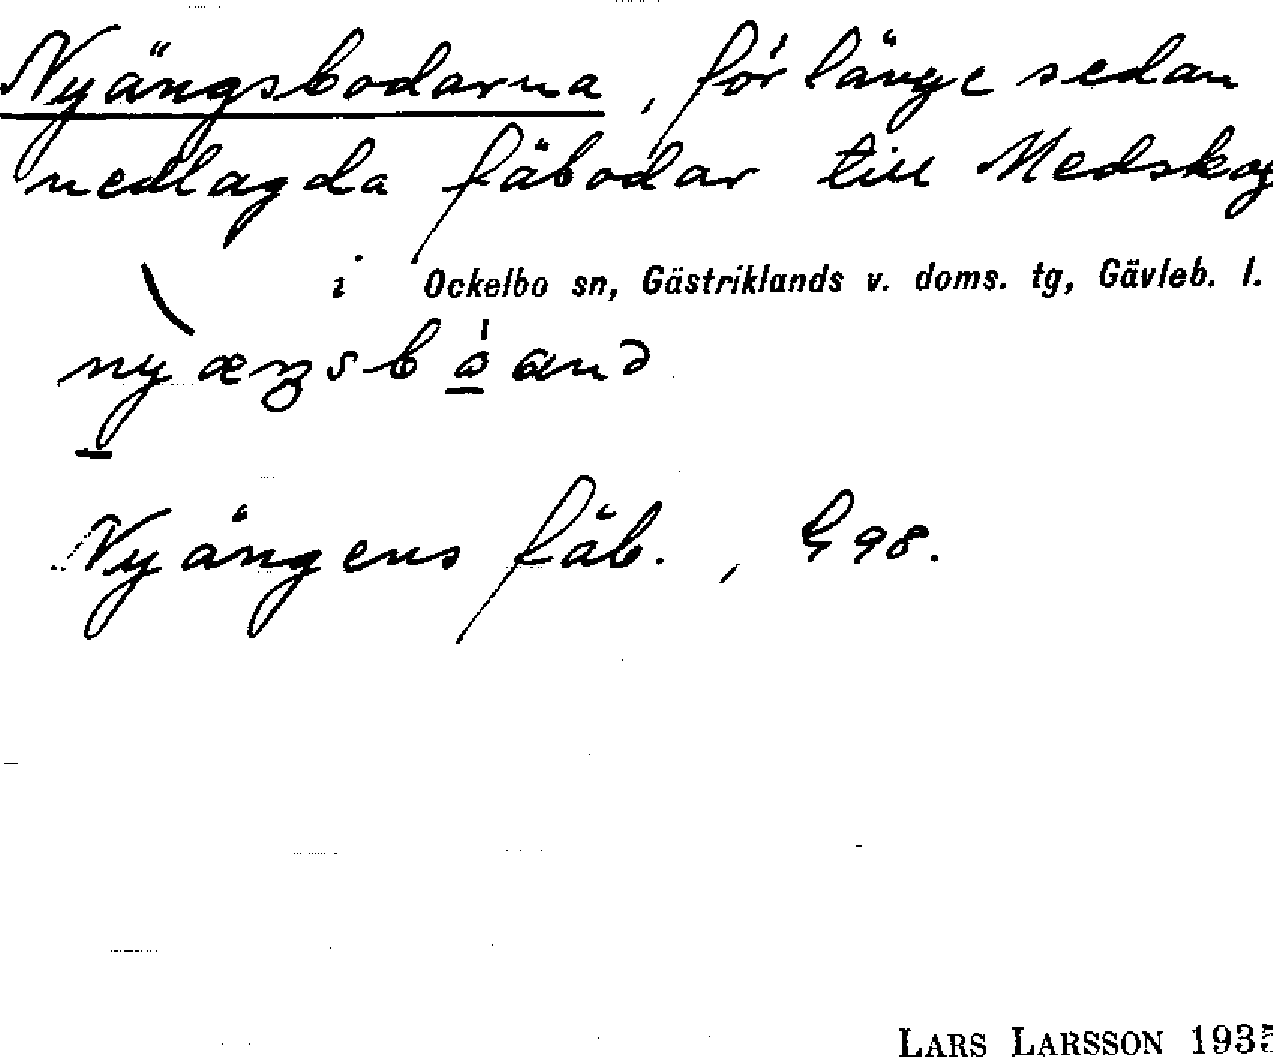 Nyängsbodarna, för länge sedan
nedlagda fäbodar till Medskog
i Ockelbo sn, Gästriklands v. doms. tg, Gävleb. l.
Nyängens fäb., G 98.
LARS LARSSON 1935